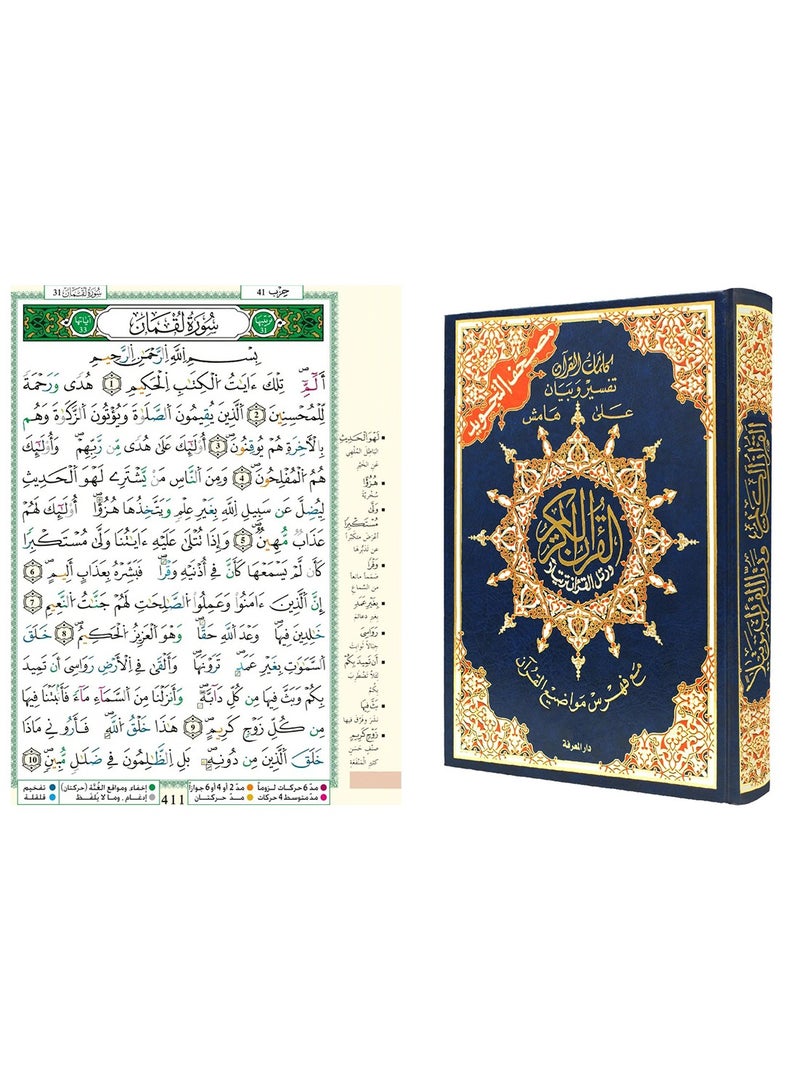 حِزْب 41
سُورَةُ لُقْمَان 31
سُورَةُ لُقْمَان
بِسْمِ اِللَّهِ اِلرَّحْمَٰنِ اِلرَّحِيمِ
أَلَٓمِّٓۖ تِلْكَ ءَايَٰتُ اُلْكِتَٰبِ اِلْحَكِيمِ 1 هُدىً وَرَحْمَةً
لِّلْمُحْسِنِينَ 2 اَلذِينَ يُقِيمُونَ اَلصَّلَوٰةَ وَيُوتُونَ اَلزَّكَوٰةَ وَهُم
بِالَاخِرَةِ هُمْ يُوقِنُونَۖ 3 أُوْلَٰٓئِكَ عَلَىٰ هُدىً مِّن رَّبِّهِمْۖ وَأُوْلَٰٓئِكَ
هُمُ اُلْمُفْلِحُونَۖ 4 وَمِنَ اَلنَّاسِ مَنْ يَّشْتَرِے لَهْوَ اَلْحَدِيثِ
لِيُضِلَّ عَن سَبِيلِ اِللَّهِ بِغَيْرِ عِلْمٖ وَيَتَّخِذُهَا هُزُؤاًۖ أُوْلَٰٓئِكَ لَهُمْ
عَذَابٌ مُّهِينٌۖ 5 وَإِذَا تُتْلَىٰ عَلَيْهِ ءَايَٰتُنَا وَلَّىٰ مُسْتَكْبِراً
كَأَن لَّمْ يَسْمَعْهَا كَأَنَّ فِےٓ أُذْنَيْهِ وَقْراًۖ فَبَشِّرْهُ بِعَذَابٍ اَلِيمٍۖ 6
إِنَّ اَلذِينَ ءَامَنُواْ وَعَمِلُواْ اُلصَّٰلِحَٰتِ لَهُمْ جَنَّٰتُ اُلنَّعِيمِ 7
خَٰلِدِينَ فِيهَاۖ وَعْدَ اَللَّهِ حَقّاًۖ وَهُوَ اَلْعَزِيزُ اُلْحَكِيمُۖ 8 خَلَقَ
اَلسَّمَٰوَٰتِ بِغَيْرِ عَمَدٖۖ تَرَوْنَهَاۖ وَأَلْقَىٰ فِے اِلَارْضِ رَوَٰسِيَ أَن تَمِيدَ
بِكُمْ وَبَثَّ فِيهَا مِن كُلِّ دَآبَّةٖۖ وَأَنزَلْنَا مِنَ اَلسَّمَآءِ مَآءً فَأَنۢبَتْنَا فِيهَا
مِن كُلِّ زَوْجٖ كَرِيمٍۖ 9 هَٰذَا خَلْقُ اُللَّهِۖ فَأَرُونِے مَاذَا
خَلَقَ اَلذِينَ مِن دُونِهِۦۖ بَلِ اِلظَّٰلِمُونَ فِے ضَلَٰلٖ مُّبِينٖۖ 10
لَهْوَ الْحَدِيثِ
البَاطِلَ المُلْهِي
عَنِ الخَيْرِ
هُزُؤًا
سُخْرِيَّةً
وَلَّى
مُسْتَكْبِرًا
أعْرَضَ مُتَكَبِّرًا
عَن تَدَبُّرِهَا
وَقْرًا
صَمَمًا مانِعًا
مِن السَّمَاعِ
بِغَيْرِ عَمَدٍ
بِغَيْرِ دَعَائِمَ
رَوَاسِيَ
جِبَالاً ثَوَابِتَ
أَن تَمِيدَ بِكُمْ
لِئَلاَّ تَضْطَرِبَ
بِكُمْ
بَثَّ فِيهَا
نَشَرَ وفَرَّقَ فيها
زَوْجٍ كَرِيمٍ
صِنْفٍ حَسَنٍ
كَثيرِ المَنْفَعَة
مدّ 6 حركات لزوماً مدّ 2 أو 4 أو 6 جوازاً إخفاء، ومواقع الغُنَّة (حركتان) تفخيم
مدّ متوسط 4 حركات مـد حركتـان 411 إدغام، وما لا يُلفَظ قلقلة
مصحف التجويد
كلمات القرآن
تفسير وبيان
على هامش
القرآن الكريم
ورتل القرآن ترتيلا
مع فهرس مواضيع القرآن
دار المعرفة
القرآن الكريم ورتل القرآن ترتيلا